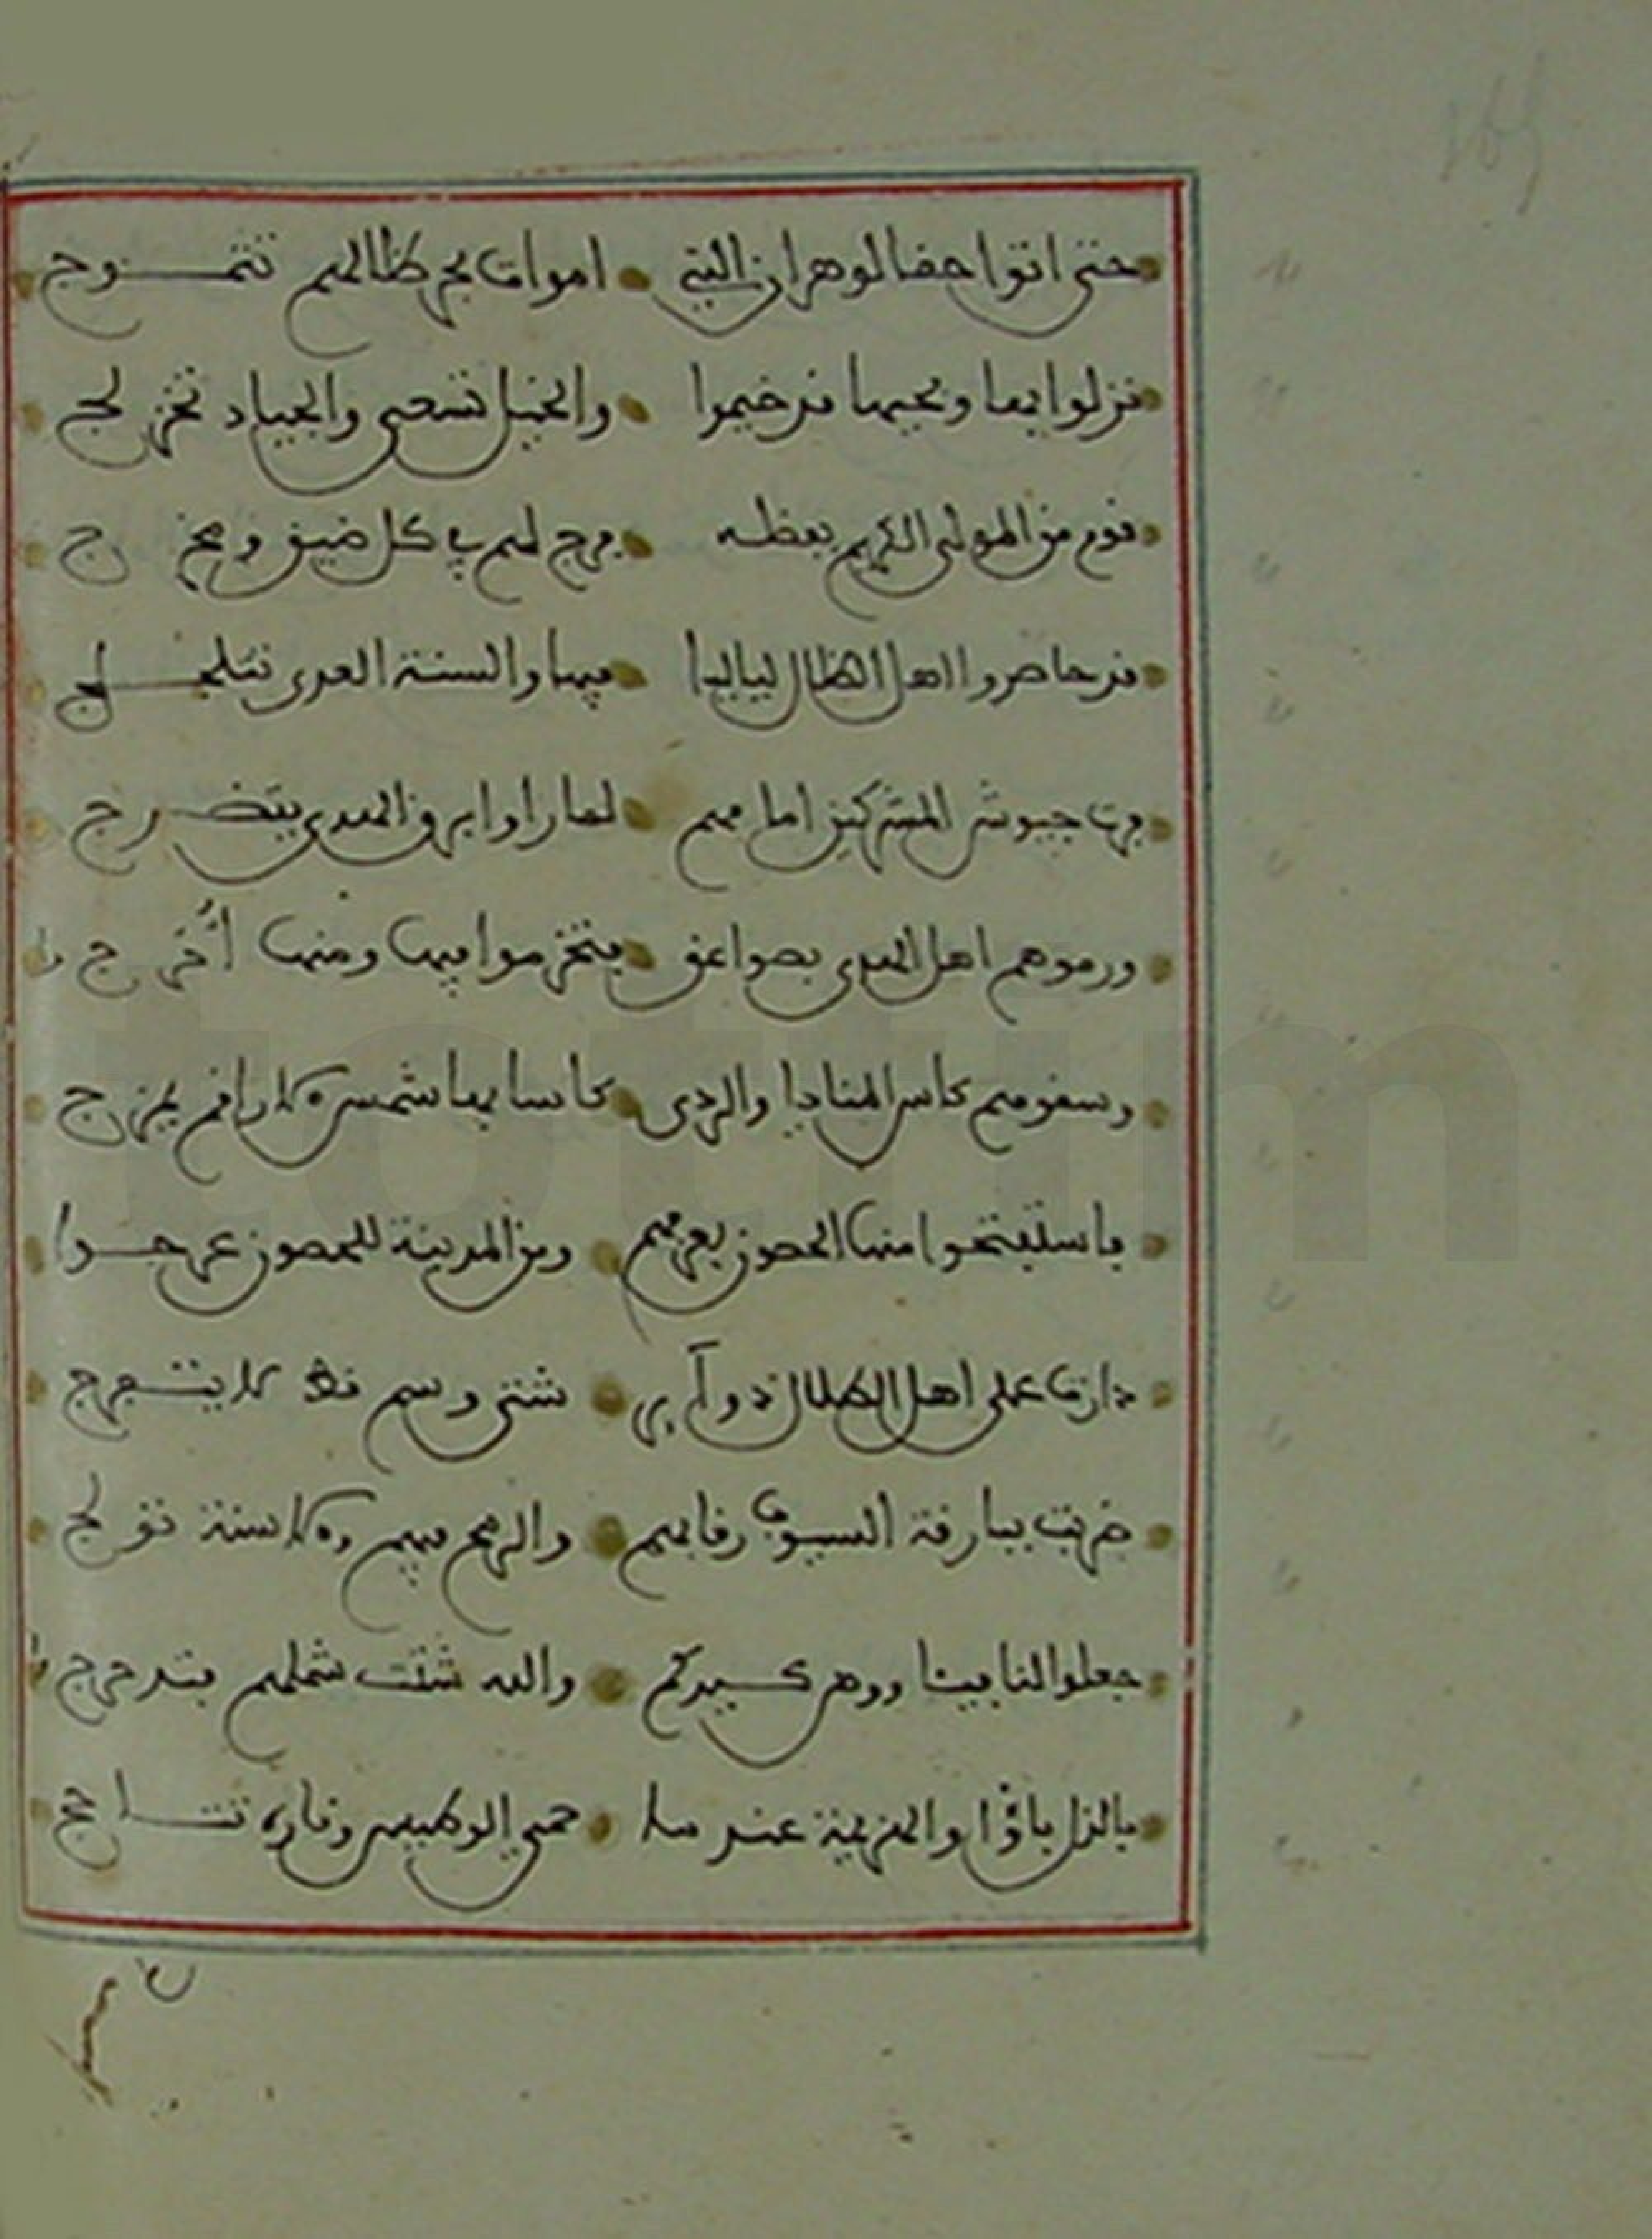 165
حتى اتوا حقا لوهران التي امواج بحر ظالهم تتمــوج
نزلوا بها وبحيها قد خيموا والخيل تسعى والجياد تخزلج
قوم من المولى الكريم بفضله فرج لهم في كل ضيق ومخرج
قد حاصروا اهل الظلال لياليا فيها والسنة العدى تتلجلج
فرت جيوش المشركين امامهم لما راوا برق الهدى يتضرج
ورموهم اهل الهدى بصواعق فتخرموا فيها ومنها أخرجت
وسقوهم كأس المنايا والردى كاسا بها شمس الاراقم يمزج
فاستفتحوا منها الحصون بعزمهم ومن المدينة للحصون عرجوا
دارت على اهل الظلال دوآير شتى وسهم قط لا يتفرج
ضربت ببارقة السيوف رقابهم والرمح فيهم والاسنة تولج
جعلوا لنا بيننا ووهر كيدكم والله شتت شملهم فتدحرجت
بالذل باؤا والهزيمة عندما حمي الوطيس وناره تتاجج
totum